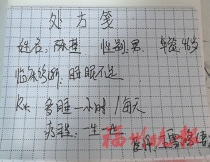 处方笺
姓名：陈 性别：男 年龄
临床诊断：睡眠不足
Rx 多睡一小时/每天
疗程：一生
福州晚报